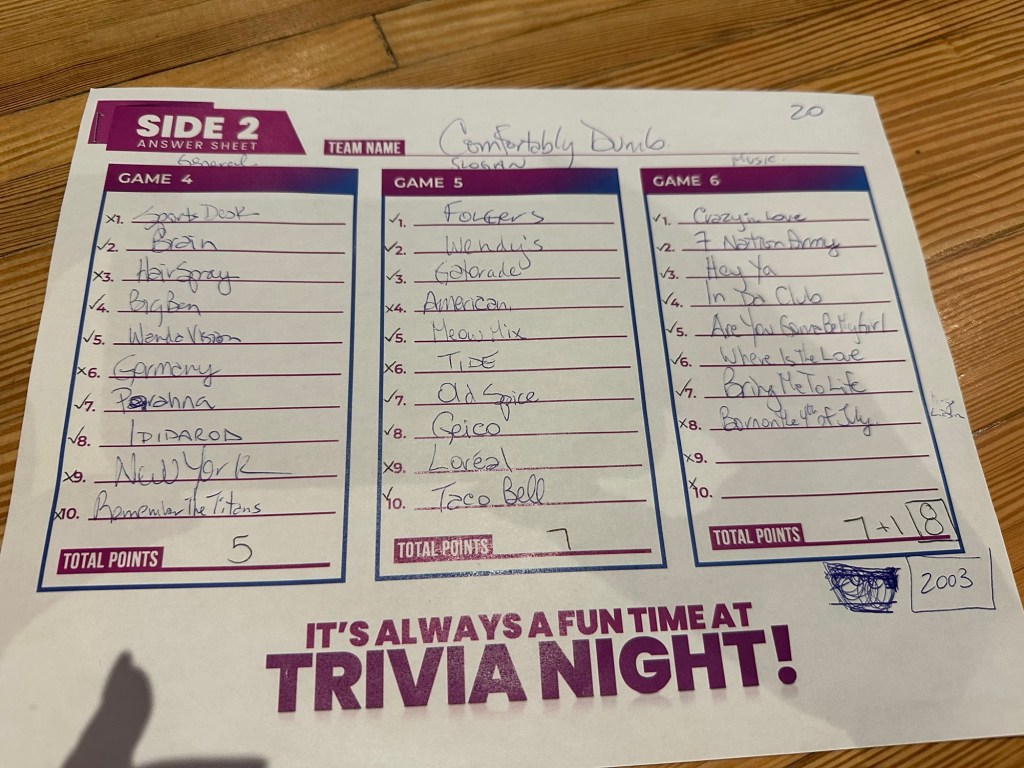 20
SIDE 2
ANSWER SHEET
TEAM NAME Comfortably Dumb
General
GAME 4
x1. Sports Desk
✓2. Brain
x3. HairSpray
✓4. Big Ben
✓5. WandaVision
x6. Germany
✓7. Pirahna
✓8. IDIDAROD
x9. New York
x10. Remember The Titans
TOTAL POINTS 5
SLOGAN
GAME 5
✓1. FOLGERS
✓2. Wendy's
✓3. Gatorade
x4. American
✓5. Meow Mix
x6. TIDE
✓7. Old Spice
✓8. Geico
x9. Loréal
✓10. Taco Bell
TOTAL POINTS 7
Music
GAME 6
✓1. Crazy in Love
✓2. 7 Nation Army
✓3. Hey Ya
✓4. In Da Club
✓5. Are You Gonna Be My Girl
✓6. Where Is the Love
✓7. Bring Me To Life
x8. Born on the 4th of July
x9.
x10.
TOTAL POINTS 7+1 8
2003
IT'S ALWAYS A FUN TIME AT
TRIVIA NIGHT!